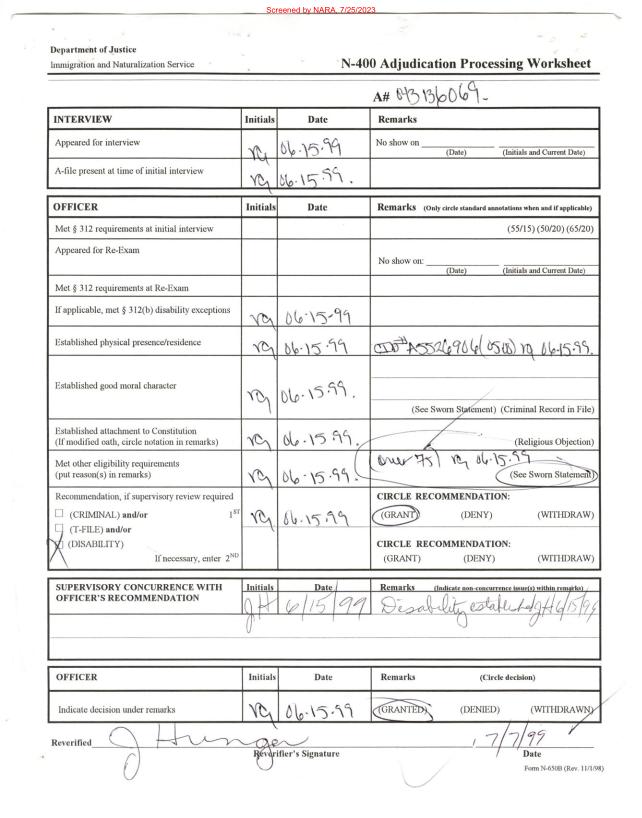 Screened by NARA, 7/25/2023
Department of Justice
Immigration and Naturalization Service
N-400 Adjudication Processing Worksheet
A# 043136069
INTERVIEW Initials Date Remarks
Appeared for interview 06-15-99 No show on
(Date) (Initials and Current Date)
A-file present at time of initial interview 06-15-99.
OFFICER Initials Date Remarks (Only circle standard annotations when and if applicable)
Met § 312 requirements at initial interview (55/15) (50/20) (65/20)
Appeared for Re-Exam No show on:
(Date) (Initials and Current Date)
Met § 312 requirements at Re-Exam
If applicable, met § 312(b) disability exceptions 06-15-99
Established physical presence/residence 06-15-99 06-15-99.
Established good moral character 06-15-99.
(See Sworn Statement) (Criminal Record in File)
Established attachment to Constitution 06-15-99.
(If modified oath, circle notation in remarks) (Religious Objection)
Met other eligibility requirements 06-15-99. (over 75) 06-15-99
(put reason(s) in remarks) (See Sworn Statement)
Recommendation, if supervisory review required CIRCLE RECOMMENDATION:
(CRIMINAL) and/or 1ST 06-15-99 (GRANT) (DENY) (WITHDRAW)
(T-FILE) and/or
(DISABILITY) CIRCLE RECOMMENDATION:
If necessary, enter 2ND (GRANT) (DENY) (WITHDRAW)
SUPERVISORY CONCURRENCE WITH Initials Date Remarks (Indicate non-concurrence issue(s) within remarks)
OFFICER'S RECOMMENDATION JH 6/15/99 Disability established JH 6/15/99
OFFICER Initials Date Remarks (Circle decision)
Indicate decision under remarks 06-15-99 (GRANTED) (DENIED) (WITHDRAWN)
Reverified J Hunger 7/7/99
Reverifier's Signature Date
Form N-650B (Rev. 11/1/98)